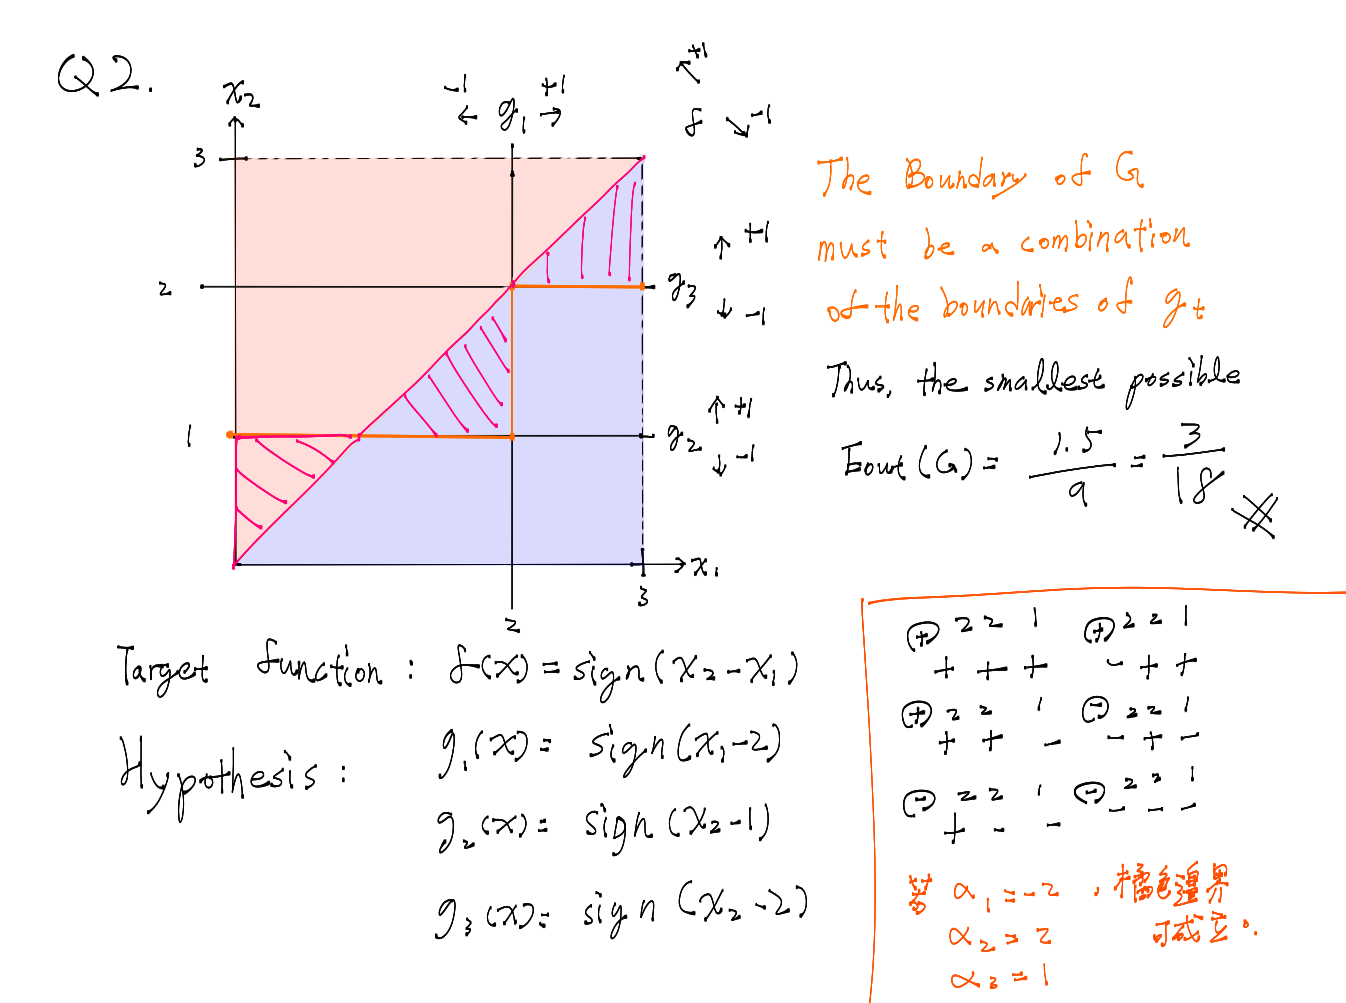 Q2.
x₂
-1 ← g₁ → +1
↖ +1
f ↘ -1
3
2
1
↑ +1
g₃
↓ -1
↑ +1
g₂
↓ -1
x₁
3
2
The Boundary of G
must be a combination
of the boundaries of gₜ
Thus, the smallest possible
Eout(G) = 1.5/9 = 3/18
Target function : f(x) = sign(x₂-x₁)
Hypothesis : g₁(x) = sign(x₁-2)
g₂(x) = sign(x₂-1)
g₃(x) = sign(x₂-2)
⊕ 2 2 1 ⊕ 2 2 1
+ + + - + +
⊕ 2 2 1 ⊖ 2 2 1
+ + - - + -
⊖ 2 2 1 ⊖ 2 2 1
+ - - - - -
α₁ = -2 , 橘色邊界
α₂ = 2 可成立。
α₃ = 1